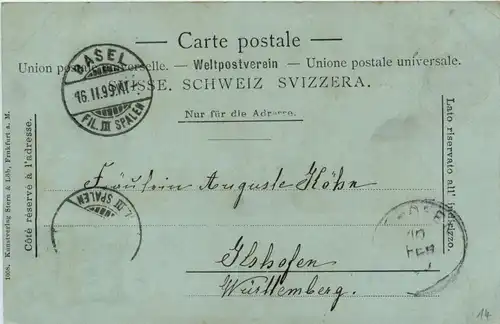 — Carte postale —
Union postale universelle. — Weltpostverein — Unione postale universale.
SUISSE. SCHWEIZ SVIZZERA.
Nur für die Adresse.
BASEL
16.II.99.
FIL. III SPALEN
Côté réservé à l'adresse.
Lato riservato all' indirizzo.
1008. Kunstverlag Stern & Löb, Frnkfurt a. M.
Fräulein Auguste Höhn
L. III SPALEN
Ilshofen
Württemberg.
10
FEB
14